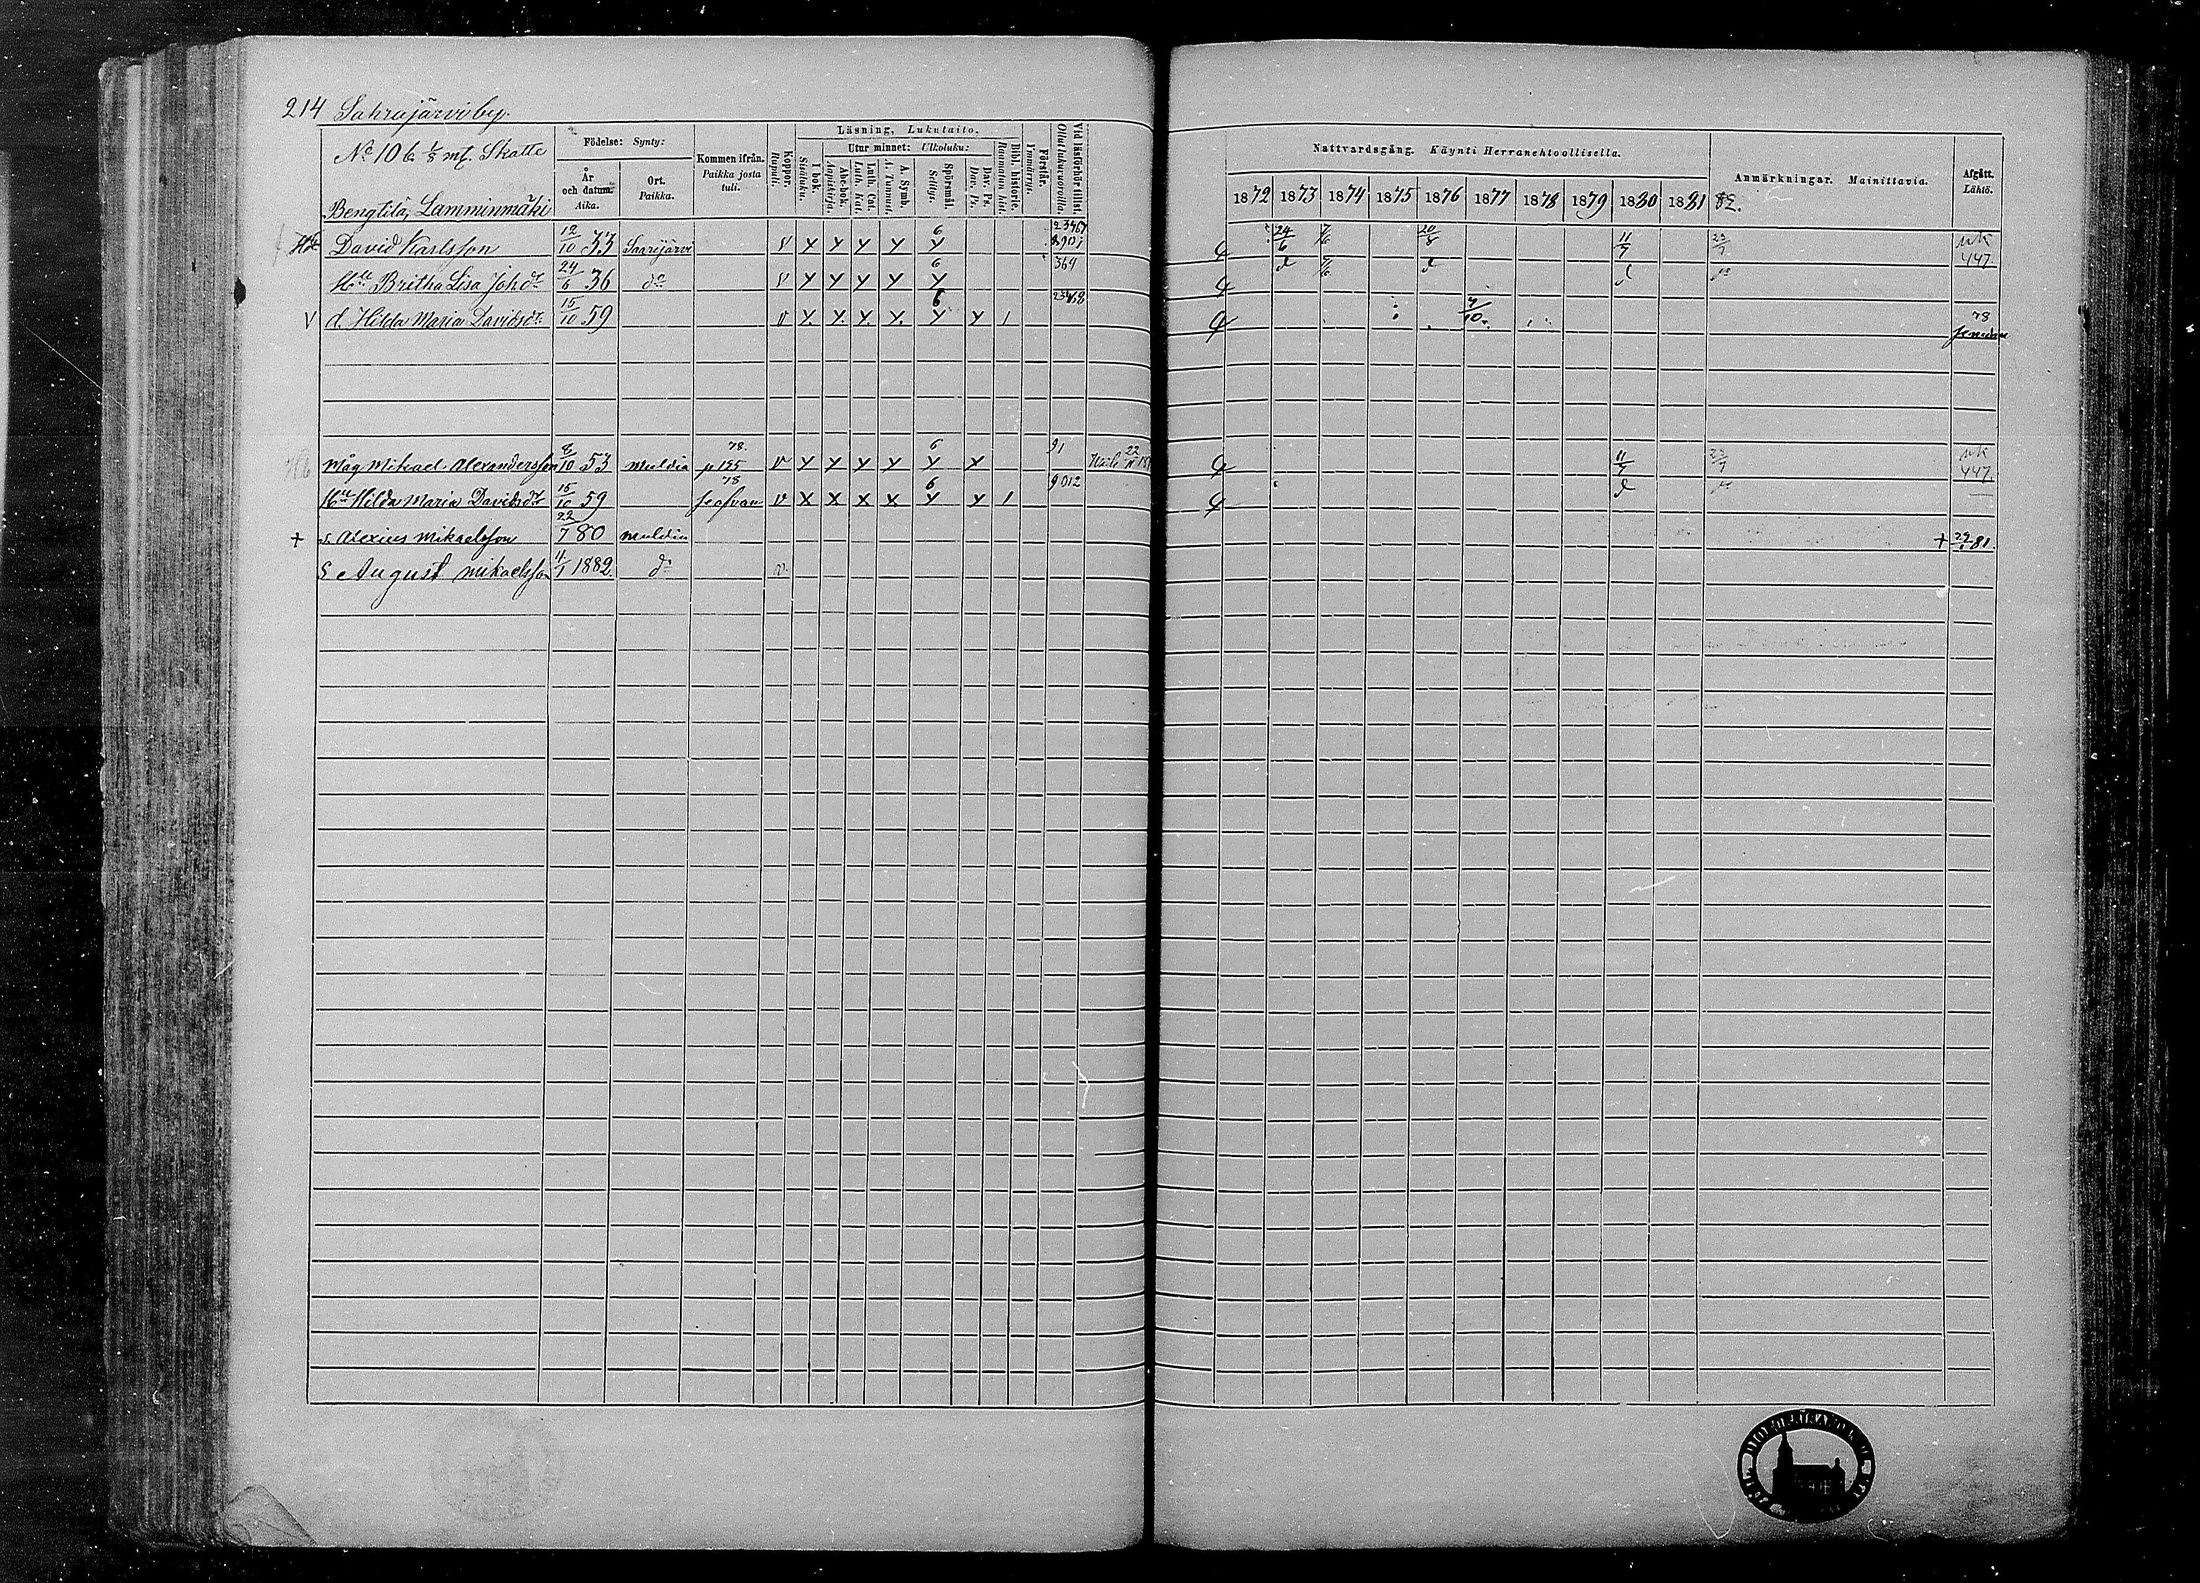 214 Sahrajärvi by.
No 10 b. 1/8 mt. Skatte
Bengtilä, Lamminmäki
Födelse: Synty:
År och datum. Aika.
Ort. Paikka.
Kommen ifrån. Paikka josta tuli.
Koppor. Rupuli.
Läsning, Lukutaito.
I bok. Sisäluku.
Utur minnet: Ulkoluku:
Abc-bok. Aapiskirja.
Luth. Cat. Luth. Kat.
A. Symb. A. Tunnust.
Spörsmål. Selitys.
Dav. Ps. Dav. Ps.
Bibl. historie. Raamatun hist.
Förstår. Ymmärrys.
Vid läsförhör tillst. Ollut lukuvuoroilla.
Nattvardsgång. Käynti Herranehtoollisella.
1872 1873 1874 1875 1876 1877 1878 1879 1880 1881 82.
Anmärkningar. Mainittavia.
Afgått. Lähtö.
David Karlsson 12/10 33 Saarijärvi V Y Y Y Y 6 Y 24/6 7/6 20/8 11/7 23/7 uk 447
Hu Britha Lisa Johdr 24/6 36 do V Y Y Y Y 6 Y 364 d 7/6 d d
V d. Hilda Maria Davidsdr 15/10 59 V Y Y Y Y 6 Y Y 1 7/10 78
Måg Mikael Alexandersson 8/10 53 Muldia 78. p 195 V Y Y Y Y 6 Y Y 91 11/7 23/7 uk 447.
Hu Hilda Maria Davidsdr 15/10 59 78 V X X X X 6 Y Y 1 9012 d
+ s. Alexius Mikaelsson 22/7 80 Muldia + 81.
S August Mikaelsson 11/1 1882. do v.